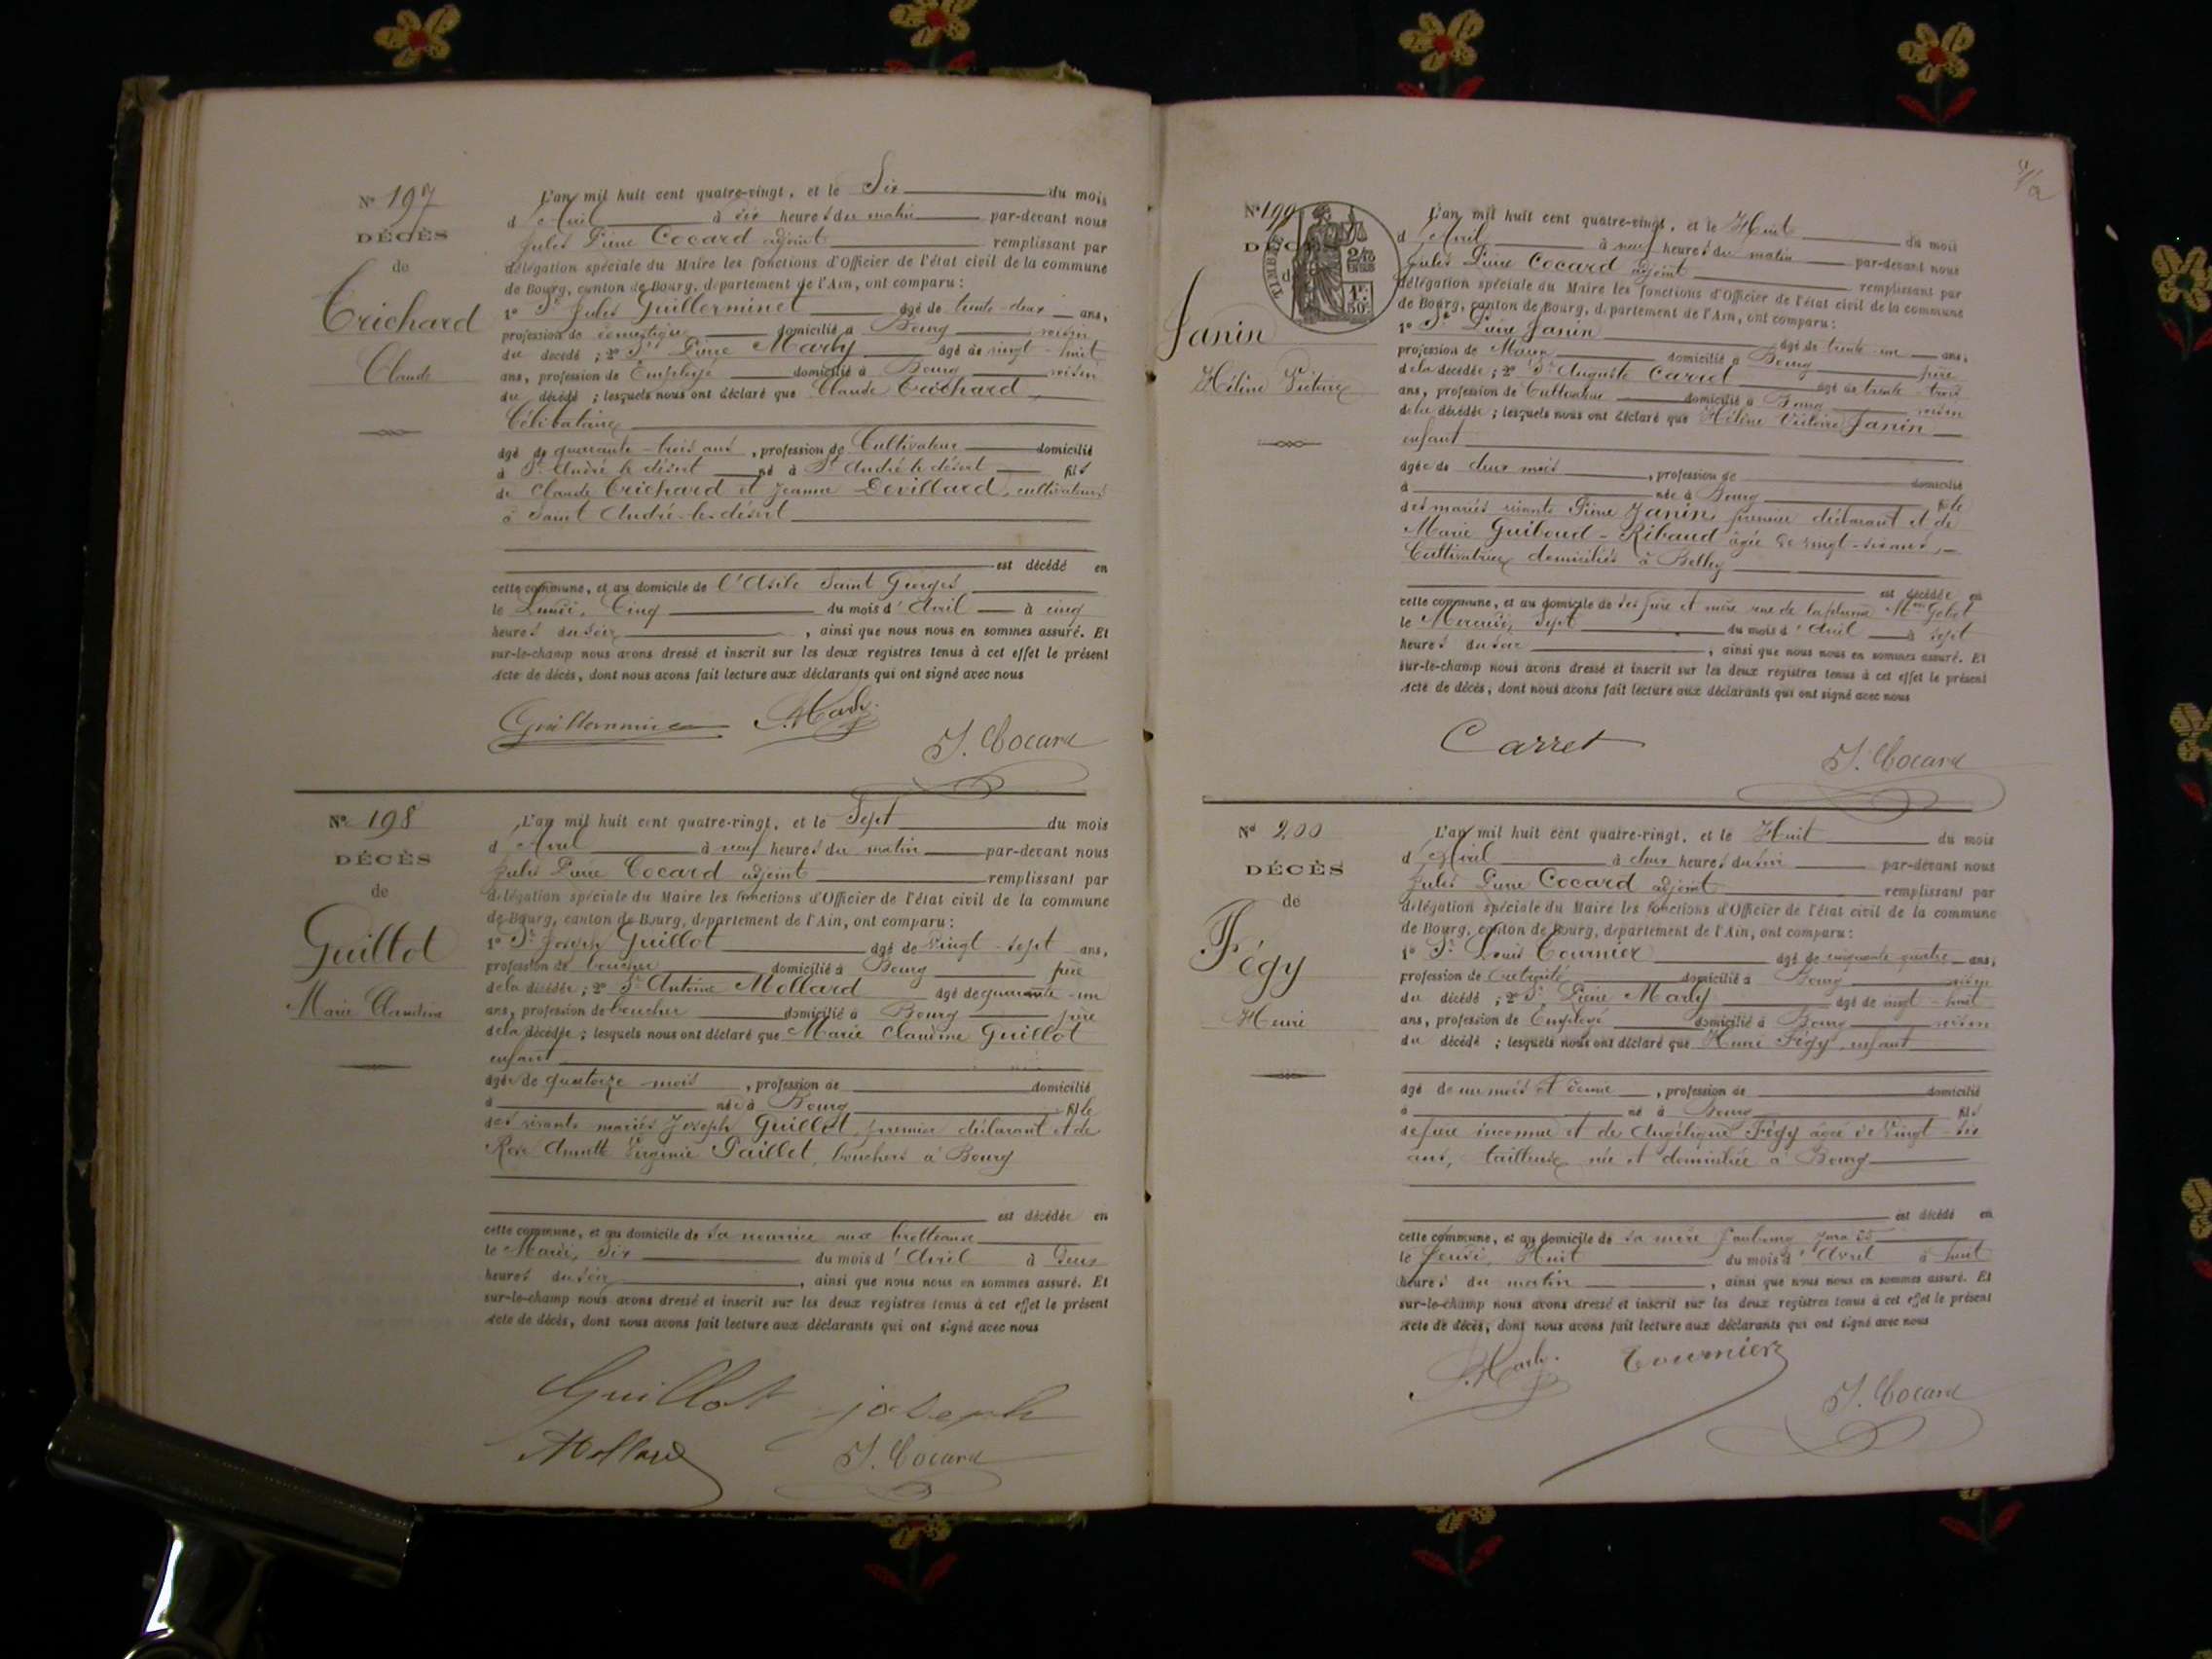 N° 197
DÉCÈS
de
Trichard
Claude
L'an mil huit cent quatre-vingt, et le Six du mois
d'Avril à dix heures du matin par-devant nous
Jules Pierre Cocard adjoint remplissant par
délégation spéciale du Maire les fonctions d'Officier de l'état civil de la commune
de Bourg, canton de Bourg, département de l'Ain, ont comparu :
1° Sr Jules Guillerminet âgé de trente-deux ans,
profession de domestique domicilié à Bourg voisin
du décédé ; 2° Sr Pierre Marly âgé de vingt-huit
ans, profession de Employé domicilié à Bourg voisin
du décédé ; lesquels nous ont déclaré que Claude Trichard
Célibataire
âgé de quarante-trois ans, profession de Cultivateur domicilié
à St André le désert né à St André le désert fils
de Claude Trichard et Jeanne Devillard, cultivateurs
à Saint André-le-désert
est décédé en
cette commune, et au domicile de l'Asile Saint Georges
le Lundi, Cinq du mois d'Avril à cinq
heures du soir, ainsi que nous nous en sommes assuré. Et
sur-le-champ nous avons dressé et inscrit sur les deux registres tenus à cet effet le présent
acte de décès, dont nous avons fait lecture aux déclarants qui ont signé avec nous
J. Cocard
N° 198
DÉCÈS
de
Guillot
Marie Claudine
L'an mil huit cent quatre-vingt, et le Sept du mois
d'Avril à neuf heures du matin par-devant nous
Jules Pierre Cocard adjoint remplissant par
délégation spéciale du Maire les fonctions d'Officier de l'état civil de la commune
de Bourg, canton de Bourg, département de l'Ain, ont comparu :
1° Sr Joseph Guillot âgé de vingt-sept ans,
profession de boucher domicilié à Bourg père
de la décédée ; 2° Sr Antoine Mollard âgé de quarante-un
ans, profession de boucher domicilié à Bourg
de la décédée ; lesquels nous ont déclaré que Marie Claudine Guillot
enfant
âgée de quatorze mois, profession de domicilié
à née à Bourg fille
des vivants mariés Joseph Guillot, premier déclarant et de
Rose Annette Eugénie Paillet, bouchers à Bourg
est décédée en
cette commune, et au domicile de sa nourrice aux
le Mardi, Six du mois d'Avril à deux
heures du soir, ainsi que nous nous en sommes assuré. Et
sur-le-champ nous avons dressé et inscrit sur les deux registres tenus à cet effet le présent
acte de décès, dont nous avons fait lecture aux déclarants qui ont signé avec nous
Guillot joseph
Mollard J. Cocard
N° 199
DÉCÈS
TIMBRE
2/10 EN SUS
1F 50c
Janin
Hélène Victoire
L'an mil huit cent quatre-vingt, et le Huit du mois
d'Avril à neuf heures du matin par-devant nous
Jules Pierre Cocard adjoint remplissant par
délégation spéciale du Maire les fonctions d'Officier de l'état civil de la commune
de Bourg, canton de Bourg, département de l'Ain, ont comparu :
1° Sr Pierre Janin âgé de trente-un ans,
profession de Maçon domicilié à Bourg père
de la décédée ; 2° Sr Auguste Carret âgé de trente-trois
ans, profession de Cultivateur domicilié à Bourg voisin
de la décédée ; lesquels nous ont déclaré que Hélène Victoire Janin
enfant
âgée de deux mois, profession de domicilié
à née à Bourg fille
des mariés vivants Pierre Janin, premier déclarant et de
Marie Guiboud-Ribaud âgée de vingt-six ans,
Cultivatrice domiciliés à Belley
est décédée en
cette commune, et au domicile de ses père et mère rue de
le Mercredi, Sept du mois d'Avril à sept
heures du soir, ainsi que nous nous en sommes assuré. Et
sur-le-champ nous avons dressé et inscrit sur les deux registres tenus à cet effet le présent
acte de décès, dont nous avons fait lecture aux déclarants qui ont signé avec nous
Carret
J. Cocard
N° 200
DÉCÈS
de
Fégy
Henri
L'an mil huit cent quatre-vingt, et le Huit du mois
d'Avril à deux heures du soir par-devant nous
Jules Pierre Cocard adjoint remplissant par
délégation spéciale du Maire les fonctions d'Officier de l'état civil de la commune
de Bourg, canton de Bourg, département de l'Ain, ont comparu :
1° Sr Louis Tournier âgé de cinquante-quatre ans,
profession de retraité domicilié à Bourg voisin
du décédé ; 2° Sr Pierre Marly âgé de vingt-huit
ans, profession de Employé domicilié à Bourg voisin
du décédé ; lesquels nous ont déclaré que Henri Fégy, enfant
âgé de un mois et demi, profession de domicilié
à né à Bourg fils
de père inconnu et de Angélique Fégy âgée de vingt-six
ans, tailleuse née et domiciliée à Bourg
est décédé en
cette commune, et au domicile de sa mère faubourg Jura
le Jeudi, Huit du mois d'Avril à huit
heures du matin, ainsi que nous nous en sommes assuré. Et
sur-le-champ nous avons dressé et inscrit sur les deux registres tenus à cet effet le présent
acte de décès, dont nous avons fait lecture aux déclarants qui ont signé avec nous
Tournier
J. Cocard